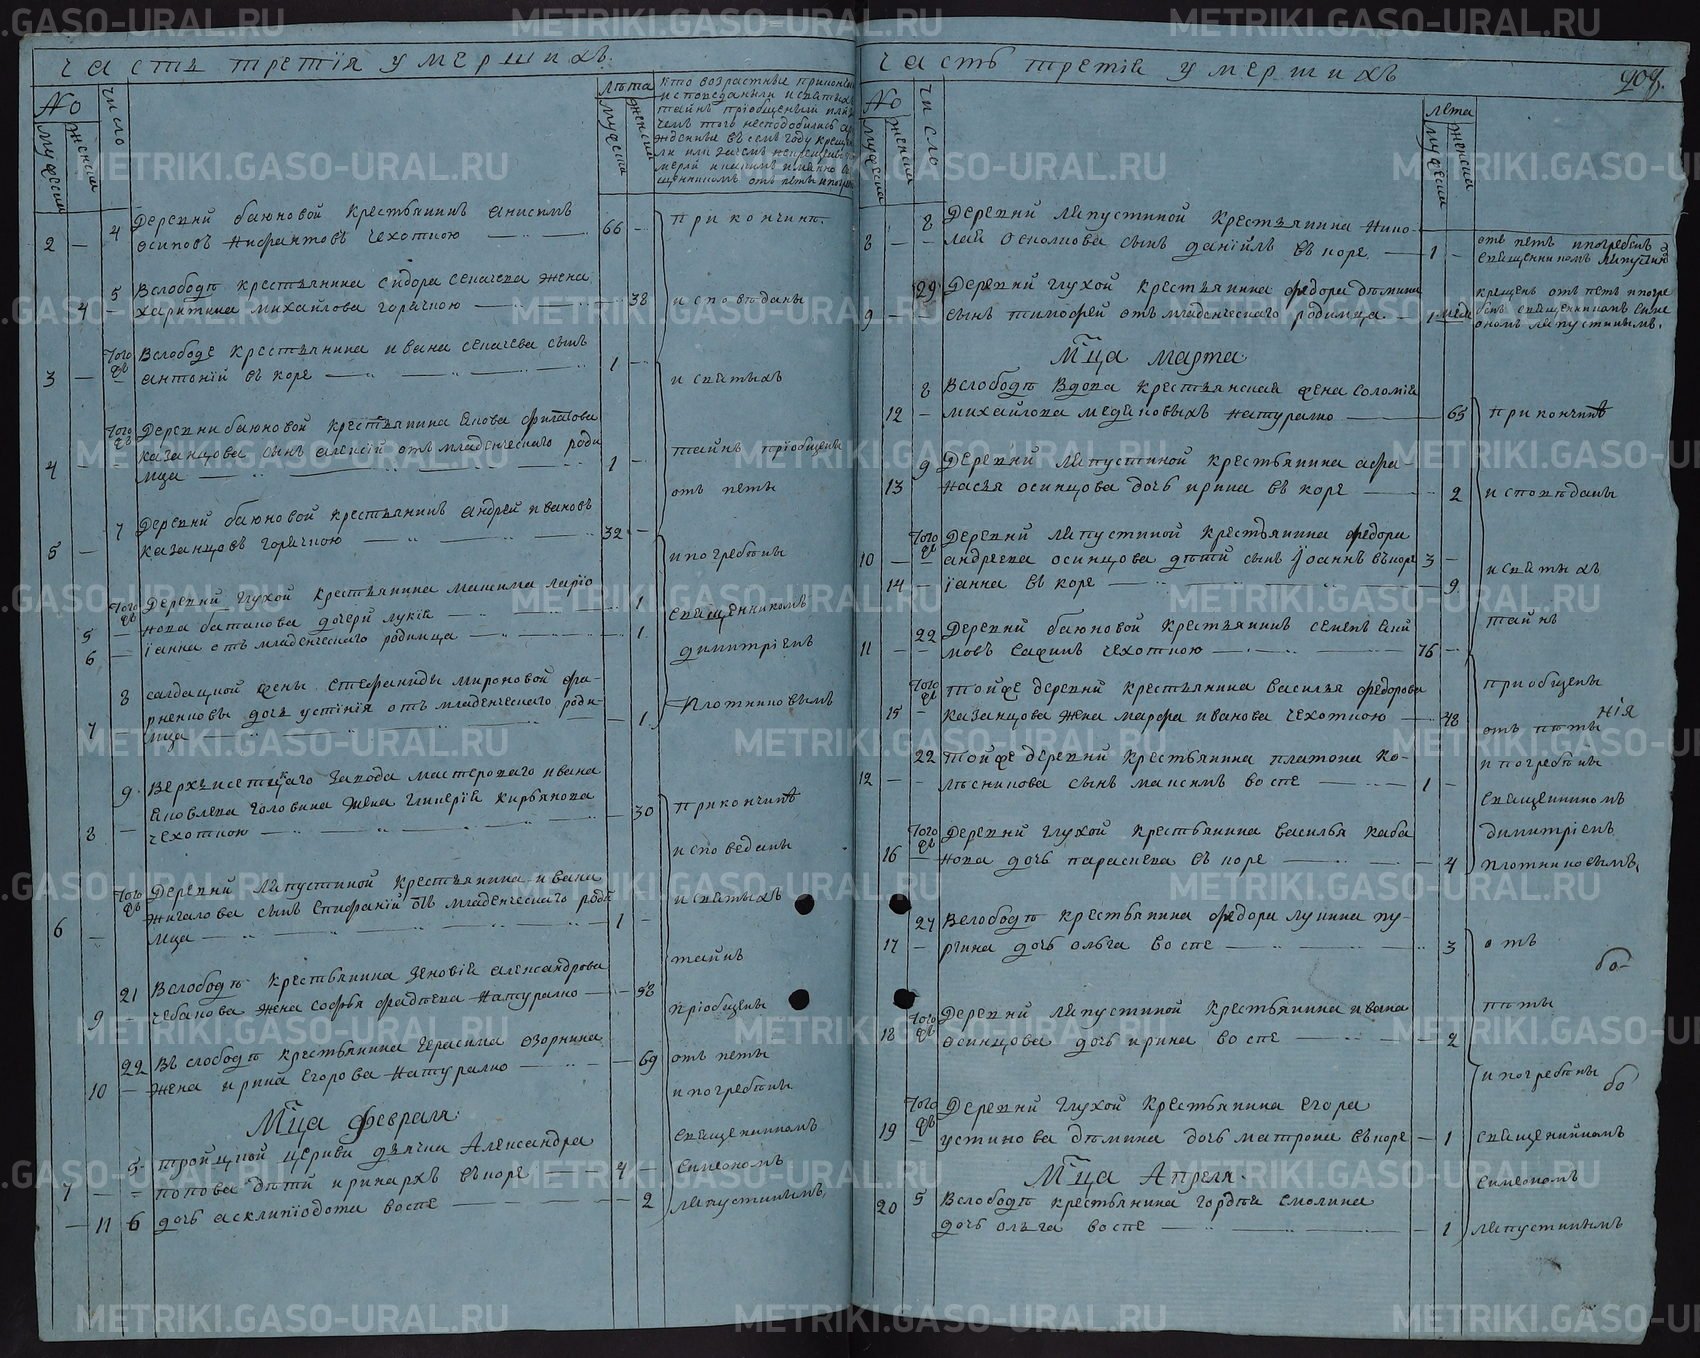 часть третія умершихъ
No
мужеска
женска
число
лѣта
мужеска
женска
кто возрастные при кончинѣ
исповеданы и святыхъ
тайнъ пріобщены или
чемъ того несподобились
священникомъ отъ петы и погребены
2 — 4 Деревни баюновой крестьянинъ анисимъ
осиповъ чехотною 66 —
при кончинѣ
4 5 Вслободѣ крестьянина сидора сепачева жена
харитина михайлова горячкою — 38
исповѣданы
3 — того Вслободе крестьянина ивана сепачева сынъ
антоній въ коре 1 —
и святыхъ
4 — того Деревни баюновой крестьянина
казанцова сынъ алексій отъ младенческаго роди
мца 1 —
тайнъ пріобщены
отъ петы
5 — 7 Деревни баюновой крестьянинъ андрей ивановъ
казанцовъ горячкою 32 —
и погребены
того Деревни глухой крестьянина максима ларіо
5 — нова батанова дочери лукія — 1
6 — іанна отъ младенческаго родимца — 1
священникомъ
димитріемъ
8 салдацкой жены стефаниды мироновой
7 — дочь устинія отъ младенческаго роди
мца — 1
Плотниковымъ
9 Верхъисетскаго завода мастероваго ивана
яковлева головина жена гликерія кирьякова
8 — чехотною — 30
при кончинѣ
исповеданы
того Деревни лапустиной крестьянина ивана
жигалова сынъ епифаній отъ младенческаго роди
6 — мца 1 —
и святыхъ
тайнъ
21 Вслободѣ крестьянина зеновія александрова
9 — чебакова жена софья фадѣева натурално — 58
пріобщены
22 Въ слободѣ крестьянина герасима озорнина
10 — жена ирина егорова натурално — 69
отъ петы
и погребены
Мца февраля
5 троицкой церкви дьячка Александра
7 — попова дѣти иринархъ въ коре 4 —
— 11 6 дочь асклипіодота воспе — 2
священникомъ
симеономъ
лапустинымъ
часть третія умершихъ
209.
No
мужеска
женска
число
лѣта
мужеска
женска
8 Деревни лапустиной крестьянина нико-
8 — лая осколкова сынъ даніилъ въ коре 1 —
отъ петъ и погребенъ
священникомъ лапустин
29 Деревни глухой крестьянина федора дѣмина
9 — сынъ тимофей отъ младенческаго родимца 1
крещенъ отъ петъ и погре
бенъ священникомъ симе
ономъ лапустинымъ.
Мца марта
8 Вслободѣ Вдова крестьянская жена соломія
12 — михайлова медяновыхъ натурално — 65
при кончинѣ
9 Деревни лапустиной крестьянина афа-
13 насья осинцова дочь ирина въ коре — 2
исповѣданы
того Деревни лапустиной крестьянина федора
10 — андреева осинцова дѣти сынъ іоаннъ въ коре 3 —
14 — іанна въ коре 9
и святыхъ
22 Деревни баюновой крестьянинъ семенъ
11 — мовъ сафинъ чехотною 76 —
тайнъ
того тойже деревни крестьянина василья федорова
15 — казанцова жена марфа иванова чехотною — 48
пріобщены
нія
отъ пѣты
22 тойже деревни крестьянина платона ко-
12 — лѣсникова сынъ максимъ воспе 1 —
и погребѣны
священникомъ
того Деревни глухой крестьянина василья каба
16 — кова дочь параскева въ коре — 4
димитріемъ
плотниковымъ,
27 Вслободѣ крестьянина федора лукина пу-
17 — ргина дочь олга воспе 3
отъ
бо-
того Деревни лапустиной крестьянина ивана
18 осинцова дочь ирина воспе — 2
пѣты
и погребѣны
бо
того Деревни глухой крестьянина егора
19 — устинова дѣмина дочь матрона въ коре — 1
священникомъ
Мца Апреля.
симеономъ
20 5 Вслободѣ крестьянина гордѣя смолина
дочь олга воспе — 1
лапустинымъ
METRIKI.GASO-URAL.RU